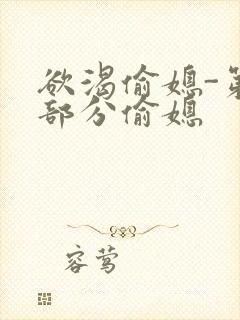 欲渴偷媳-第
部分偷媳
容莺